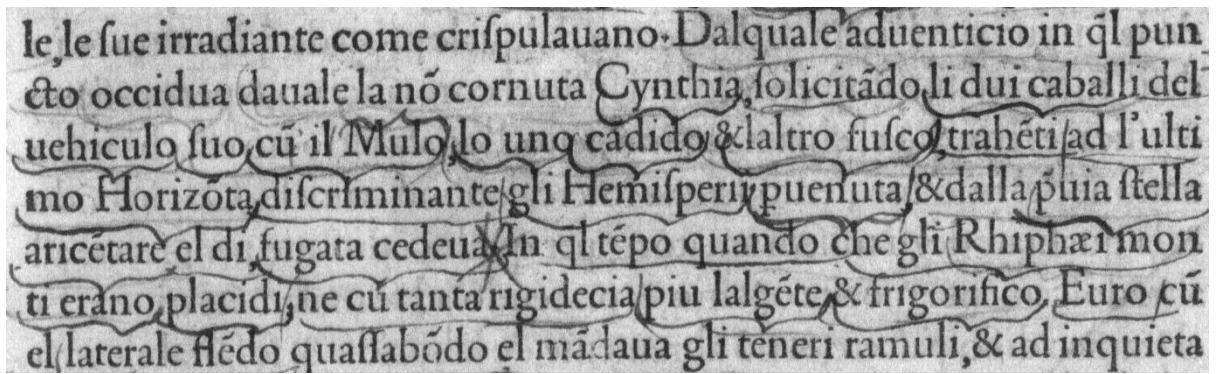 le, le ſue irradiante come criſpulauano. Dalquale aduenticio in q̃l pun
cto occidua dauale la nõ cornuta Cynthia, ſolicitãdo li dui caballi del
uehiculo ſuo, cũ il Mulo, lo uno cãdido & laltro fuſco, trahẽti ad l'ulti
mo Horizõta, diſcriminante gli Hemiſperii puenuta, & dalla p̃uia ſtella
aricẽtare el di, fugata cedeua. In q̃l tẽpo quando che gli Rhiphæi mon
ti erano placidi, ne cũ tanta rigidecia piu lalgẽte, & frigorifico Euro cũ
el laterale flẽdo quaſſabõdo el mãdaua gli teneri ramuli, & ad inquieta